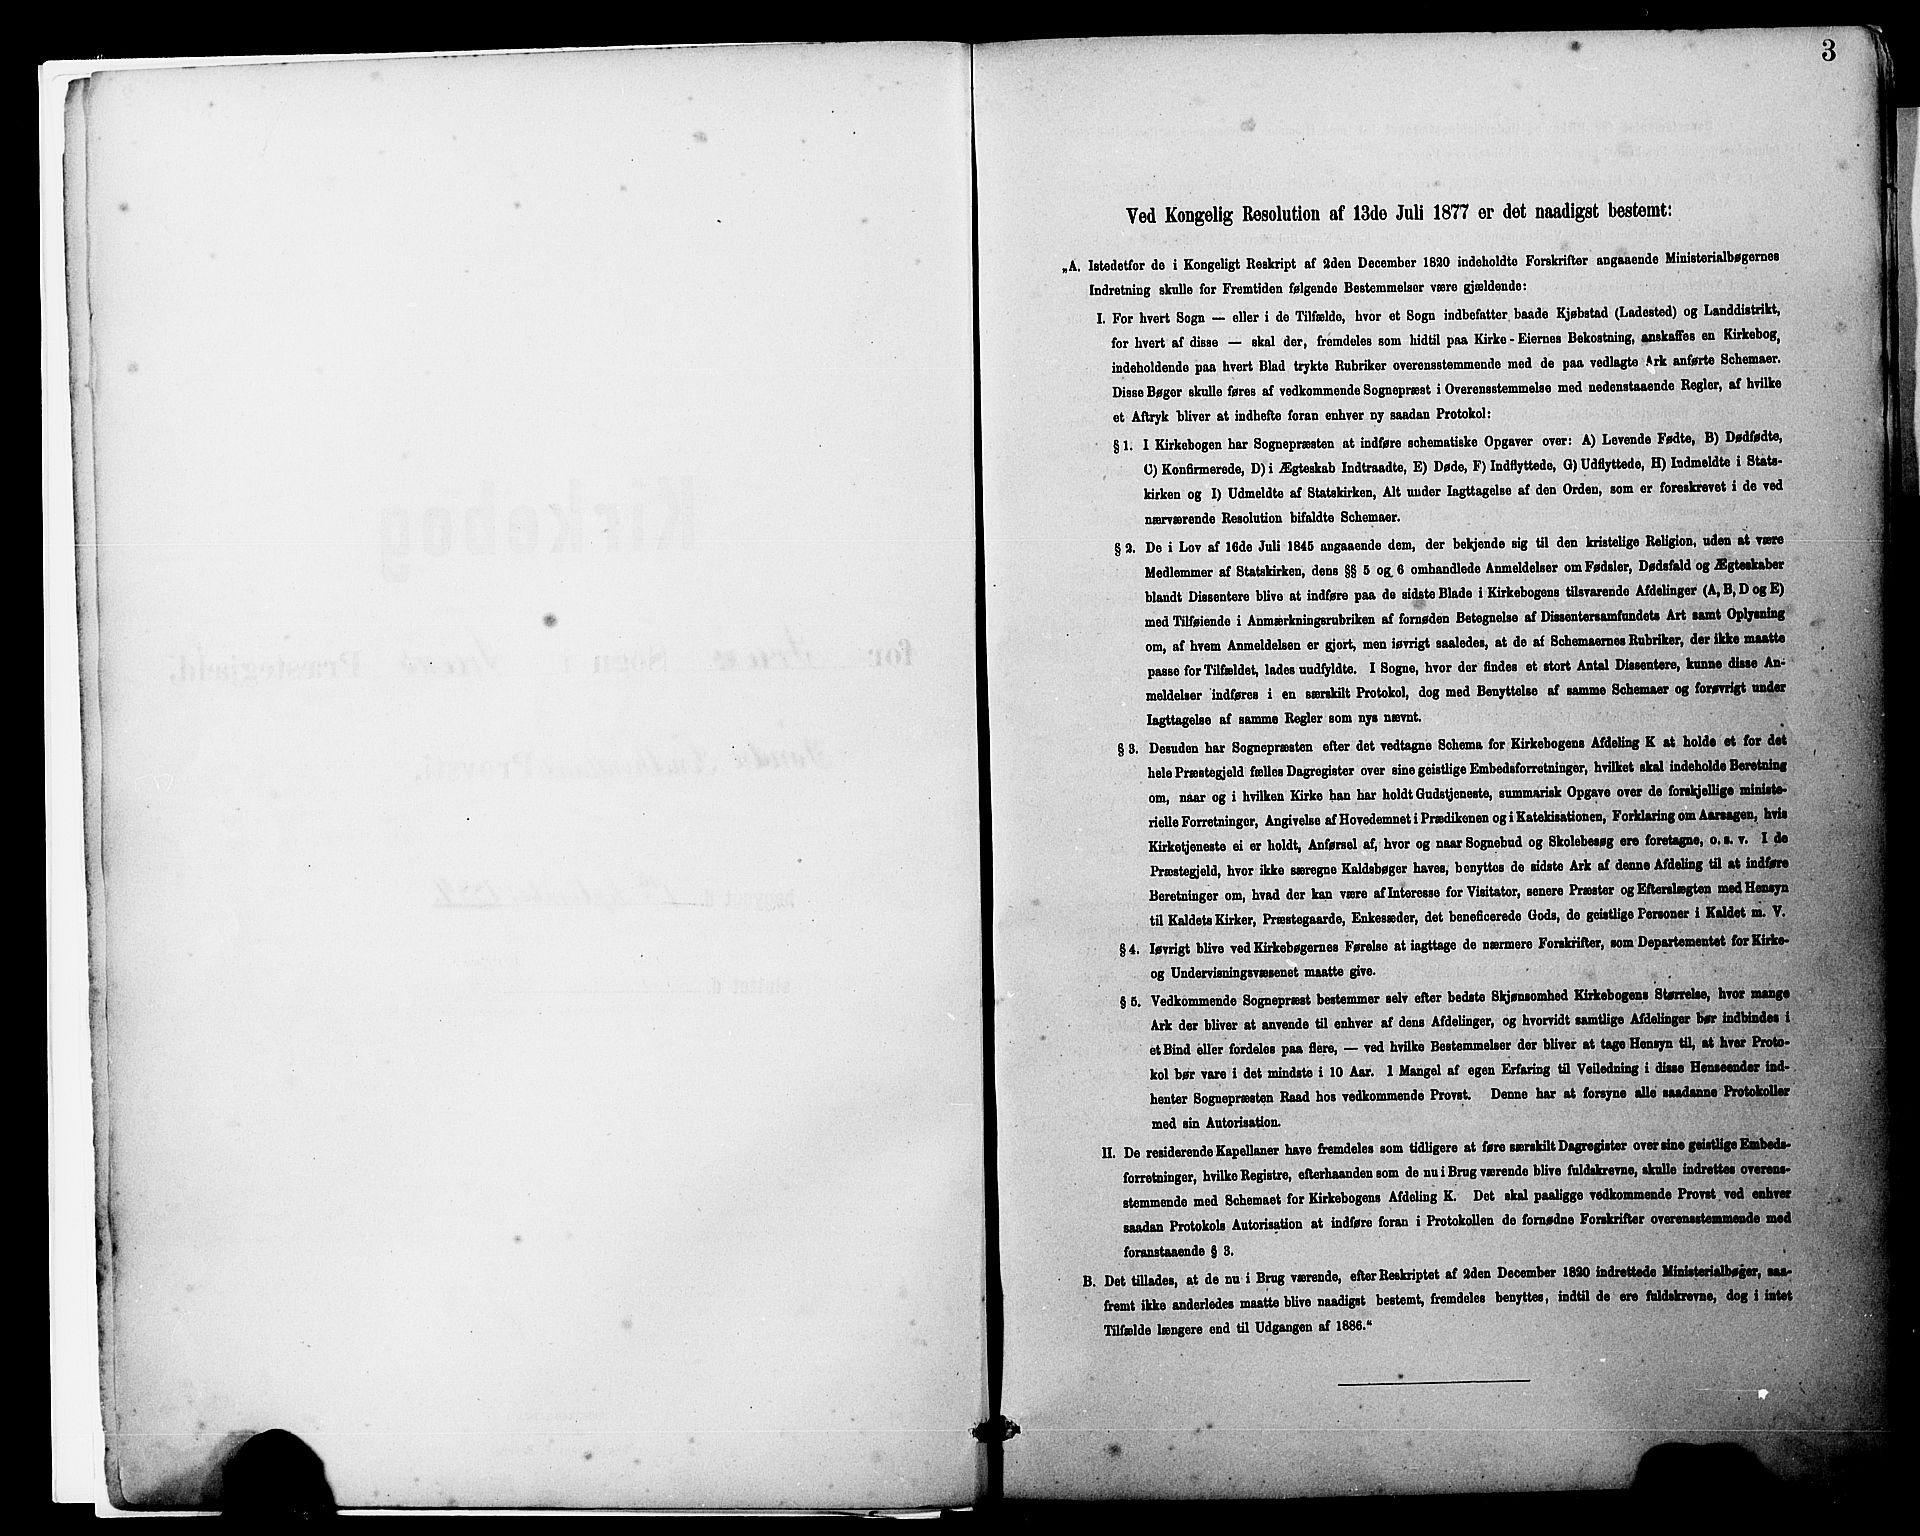 3
Ved Kongelig Resolution af 13de Juli 1877 er det naadigst bestemt:
„A. Istedetfor de i Kongeligt Reskript af 2den December 1820 indeholdte Forskrifter angaaende Ministerialbøgernes
Indretning skulle for Fremtiden følgende Bestemmelser være gjældende:
I. For hvert Sogn — eller i de Tilfælde, hvor et Sogn indbefatter baade Kjøbstad (Ladested) og Landdistrikt,
for hvert af disse — skal der, fremdeles som hidtil paa Kirke-Eiernes Bekostning, anskaffes en Kirkebog,
indeholdende paa hvert Blad trykte Rubriker overensstemmende med de paa vedlagte Ark anførte Schemaer.
Disse Bøger skulle føres af vedkommende Sognepræst i Overensstemmelse med nedenstaaende Regler, af hvilke
et Aftryk bliver at indhefte foran enhver ny saadan Protokol:
§ 1. I Kirkebogen har Sognepræsten at indføre schematiske Opgaver over: A) Levende Fødte, B) Dødfødte,
C) Konfirmerede, D) i Ægteskab Indtraadte, E) Døde, F) Indflyttede, G) Udflyttede, H) Indmeldte i Stats-
kirken og I) Udmeldte af Statskirken, Alt under Iagttagelse af den Orden, som er foreskrevet i de ved
nærværende Resolution bifaldte Schemaer.
§ 2. De i Lov af 16de Juli 1845 angaaende dem, der bekjende sig til den kristelige Religion, uden at være
Medlemmer af Statskirken, dens §§ 5 og 6 omhandlede Anmeldelser om Fødsler, Dødsfald og Ægteskaber
blandt Dissentere blive at indføre paa de sidste Blade i Kirkebogens tilsvarende Afdelinger (A, B, D og E)
med Tilføiende i Anmærkningsrubriken af fornøden Betegnelse af Dissentersamfundets Art samt Oplysning
om, af hvem Anmeldelsen er gjort, men iøvrigt saaledes, at de af Schemaernes Rubriker, der ikke maatte
passe for Tilfældet, lades uudfyldte. I Sogne, hvor der findes et stort Antal Dissentere, kunne disse An-
meldelser indføres i en særskilt Protokol, dog med Benyttelse af samme Schemaer og forøvrigt under
Iagttagelse af samme Regler som nys nævnt.
§ 3. Desuden har Sognepræsten efter det vedtagne Schema for Kirkebogens Afdeling K at holde et for det
hele Præstegjeld fælles Dagregister over sine geistlige Embedsforretninger, hvilket skal indeholde Beretning
om, naar og i hvilken Kirke han har holdt Gudstjeneste, summarisk Opgave over de forskjellige ministe-
rielle Forretninger, Angivelse af Hovedemnet i Prædikenen og i Katekisationen, Forklaring om Aarsagen, hvis
Kirketjeneste ei er holdt, Anførsel af, hvor og naar Sognebud og Skolebesøg ere foretagne, o. s. v. I de
Præstegjeld, hvor ikke særegne Kaldsbøger haves, benyttes de sidste Ark af denne Afdeling til at indføre
Beretninger om, hvad der kan være af Interesse for Visitator, senere Præster og Efterslægten med Hensyn
til Kaldets Kirker, Præstegaarde, Enkesæder, det beneficerede Gods, de geistlige Personer i Kaldet m. V.
§ 4. Iøvrigt blive ved Kirkebøgernes Førelse at iagttage de nærmere Forskrifter, som Departementet for Kirke-
og Undervisningsvæsenet maatte give.
§ 5. Vedkommende Sognepræst bestemmer selv efter bedste Skjønsomhed Kirkebogens Størrelse, hvor mange
Ark der bliver at anvende til enhver af dens Afdelinger, og hvorvidt samtlige Afdelinger bør indbindes i
et Bind eller fordeles paa flere, — ved hvilke Bestemmelser der bliver at tage Hensyn til, at hver Proto-
kol bør vare i det mindste i 10 Aar. I Mangel af egen Erfaring til Veiledning i disse Henseender ind-
henter Sognepræsten Raad hos vedkommende Provst. Denne har at forsyne alle saadanne Protokoller
med sin Autorisation.
II. De residerende Kapellaner have fremdeles som tidligere at føre særskilt Dagregister over sine geistlige Embeds-
forretninger, hvilke Registre, efterhaanden som de nu i Brug værende blive fuldskrevne, skulle indrettes overens-
stemmende med Schemaet for Kirkebogens Afdeling K. Det skal paaligge vedkommende Provst ved enhver
saadan Protokols Autorisation at indføre foran i Protokollen de fornødne Forskrifter overensstemmende med
foranstaaende § 3.
B. Det tillades, at de nu i Brug værende, efter Reskriptet af 2den December 1820 indrettede Ministerialbøger, saa-
fremt ikke anderledes maatte blive naadigst bestemt, fremdeles benyttes, indtil de ere fuldskrevne, dog i intet
Tilfælde længere end til Udgangen af 1886.“